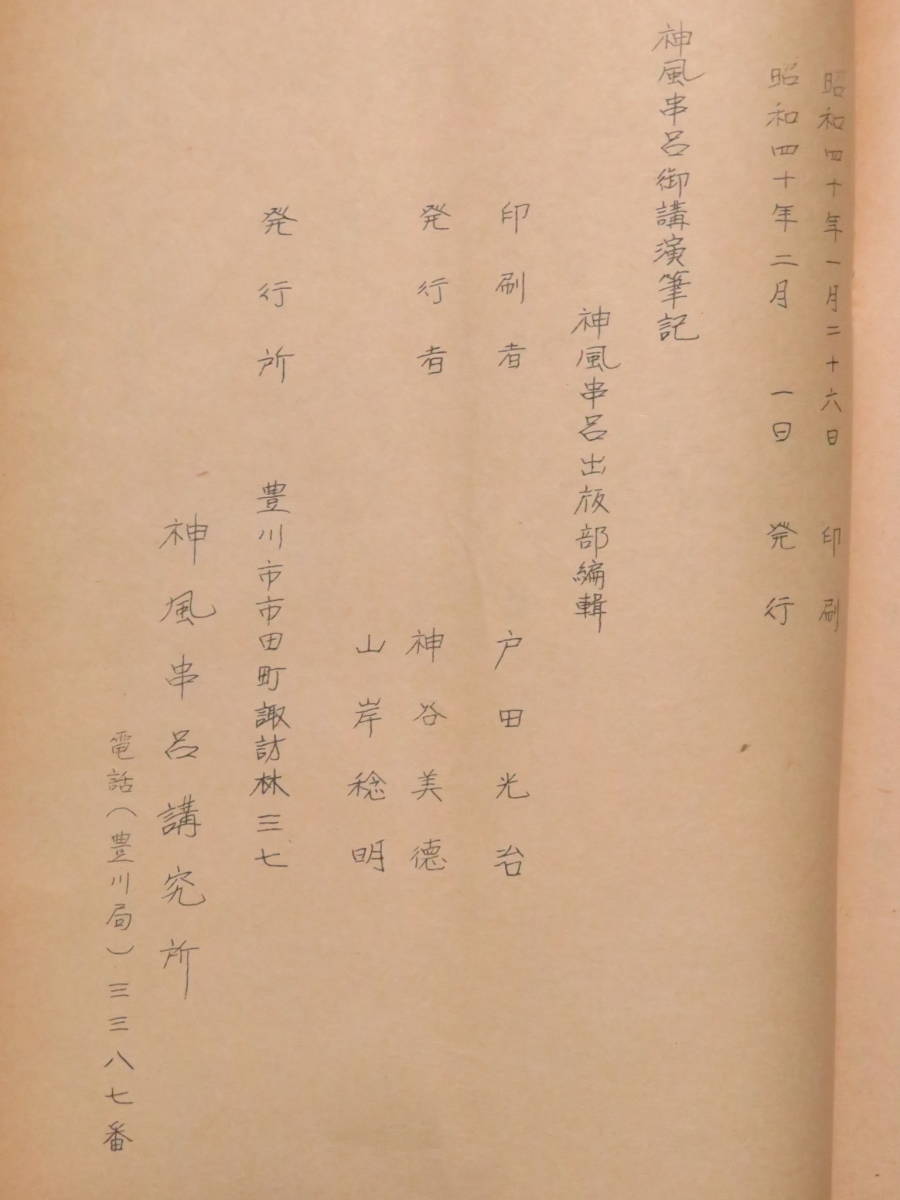 昭和四十年一月二十六日 印刷
昭和四十年二月 一日 発行
神風串呂御講演筆記
神風串呂出版部編輯
印刷者 戸田光治
発行者 神谷美徳
山岸稔明
発行所 豊川市市田町諏訪林三七
神風串呂講究所
電話(豊川局)三三八七番